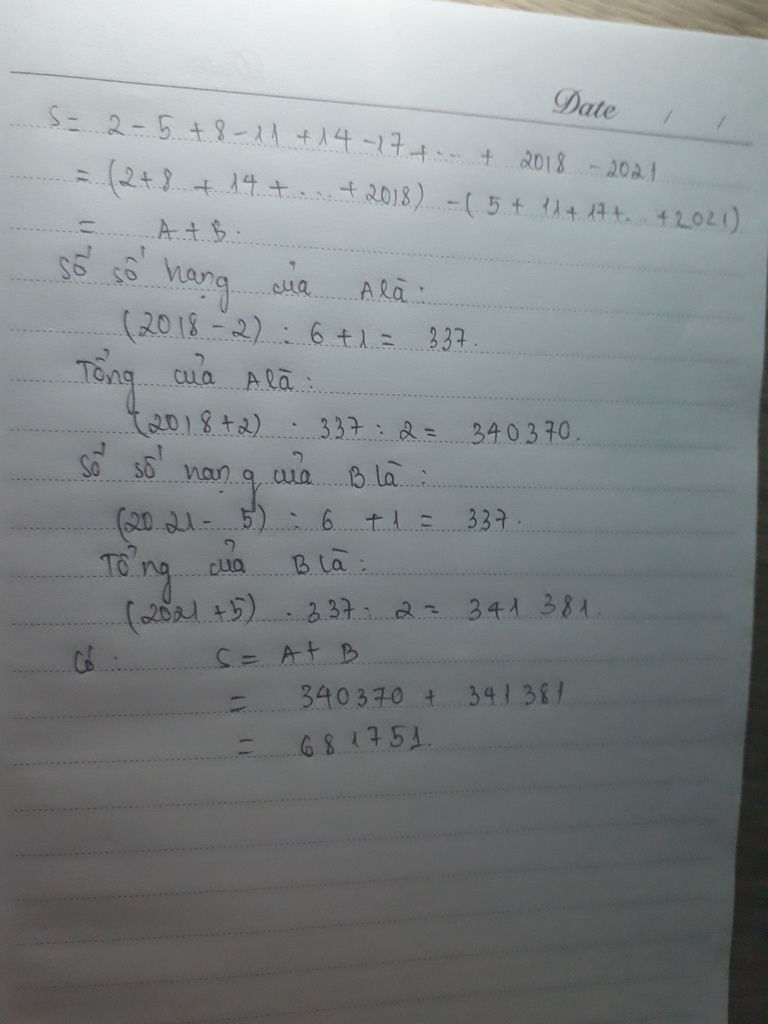 Date / /
S = 2 - 5 + 8 - 11 + 14 - 17 + ... + 2018 - 2021
= (2 + 8 + 14 + ... + 2018) - (5 + 11 + 17 + ... + 2021)
= A + B.
Số số hạng của A là:
(2018 - 2) : 6 + 1 = 337.
Tổng của A là:
(2018 + 2) . 337 : 2 = 340370.
Số số hạng của B là:
(2021 - 5) : 6 + 1 = 337.
Tổng của B là:
(2021 + 5) . 337 : 2 = 341 381.
Có: S = A + B
= 340370 + 341381
= 681751.